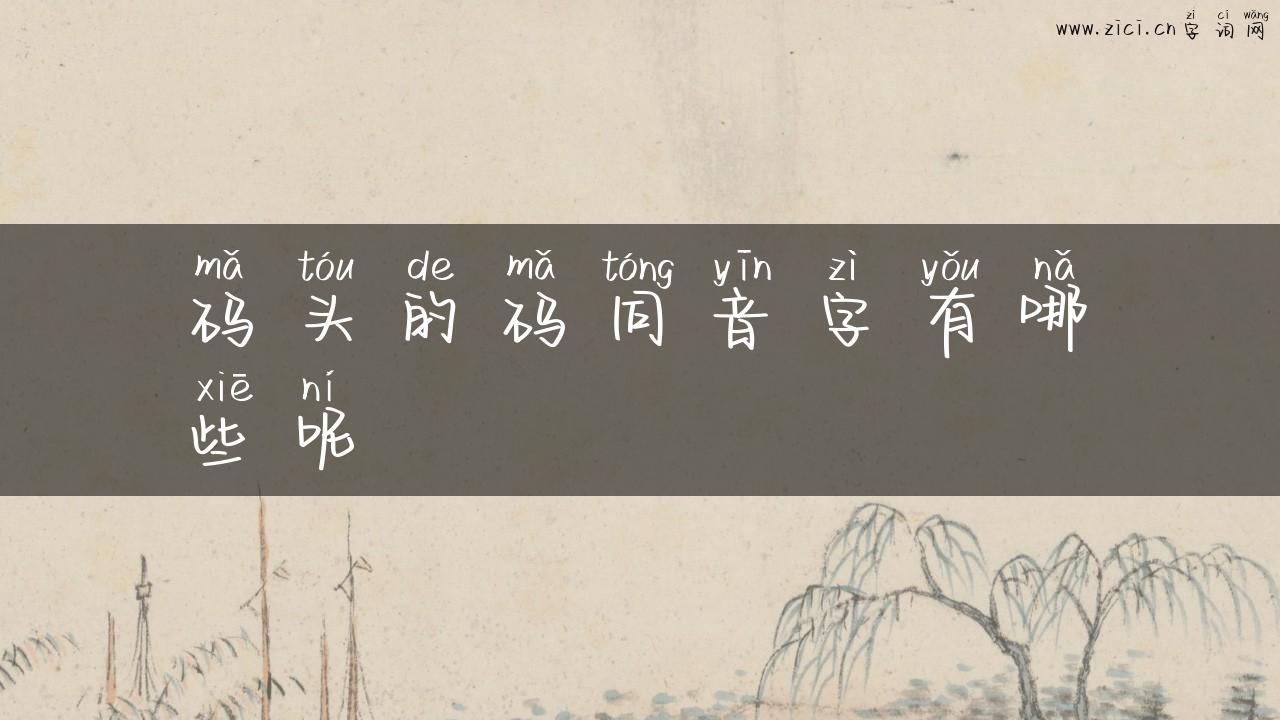 zì cí wǎng
www.zici.cn 字词网
mǎ tóu de mǎ tóng yīn zì yǒu nǎ
码头的码同音字有哪
xiē ní
些呢